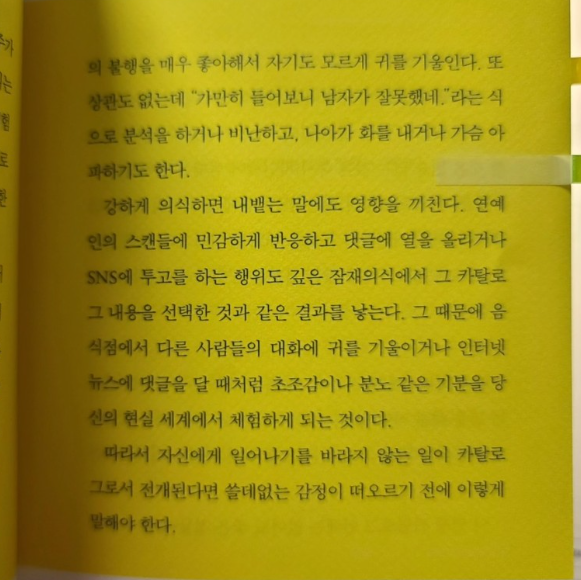 의 불행을 매우 좋아해서 자기도 모르게 귀를 기울인다. 또
상관도 없는데 “가만히 들어보니 남자가 잘못했네.”라는 식
으로 분석을 하거나 비난하고, 나아가 화를 내거나 가슴 아
파하기도 한다.
강하게 의식하면 내뱉는 말에도 영향을 끼친다. 연예
인의 스캔들에 민감하게 반응하고 댓글에 열을 올리거나
SNS에 투고를 하는 행위도 깊은 잠재의식에서 그 카탈로
그 내용을 선택한 것과 같은 결과를 낳는다. 그 때문에 음
식점에서 다른 사람들의 대화에 귀를 기울이거나 인터넷
뉴스에 댓글을 달 때처럼 초조감이나 분노 같은 기분을 당
신의 현실 세계에서 체험하게 되는 것이다.
따라서 자신에게 일어나기를 바라지 않는 일이 카탈로
그로서 전개된다면 쓸데없는 감정이 떠오르기 전에 이렇게
말해야 한다.